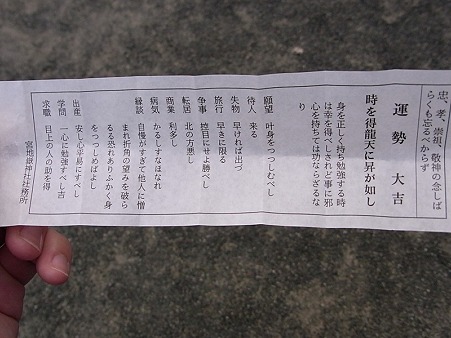 忠、孝、崇祖、敬神の念しば
らくも忘るべからず
運勢 大吉
時を得龍天に昇が如し
身を正しく持ち勉強する時
は幸を得べしされど事に邪
心を持ちては功ならざるな
り
願望 叶身をつつしむべし
待人 来る
失物 早ければ出づ
旅行 早きに限る
争事 控目にせよ勝べし
転居 北の方悪し
商業 利多し
病気 かるしすなほなれ
縁談 自慢がすぎて他人に憎
まれ折角の望みを破ら
るる恐れありふかく身
をつつしめばよし
出産 安し心平易にすべし
学問 一心に勉強すべし吉
求職 目上の人の助を得
宮地嶽神社社務所